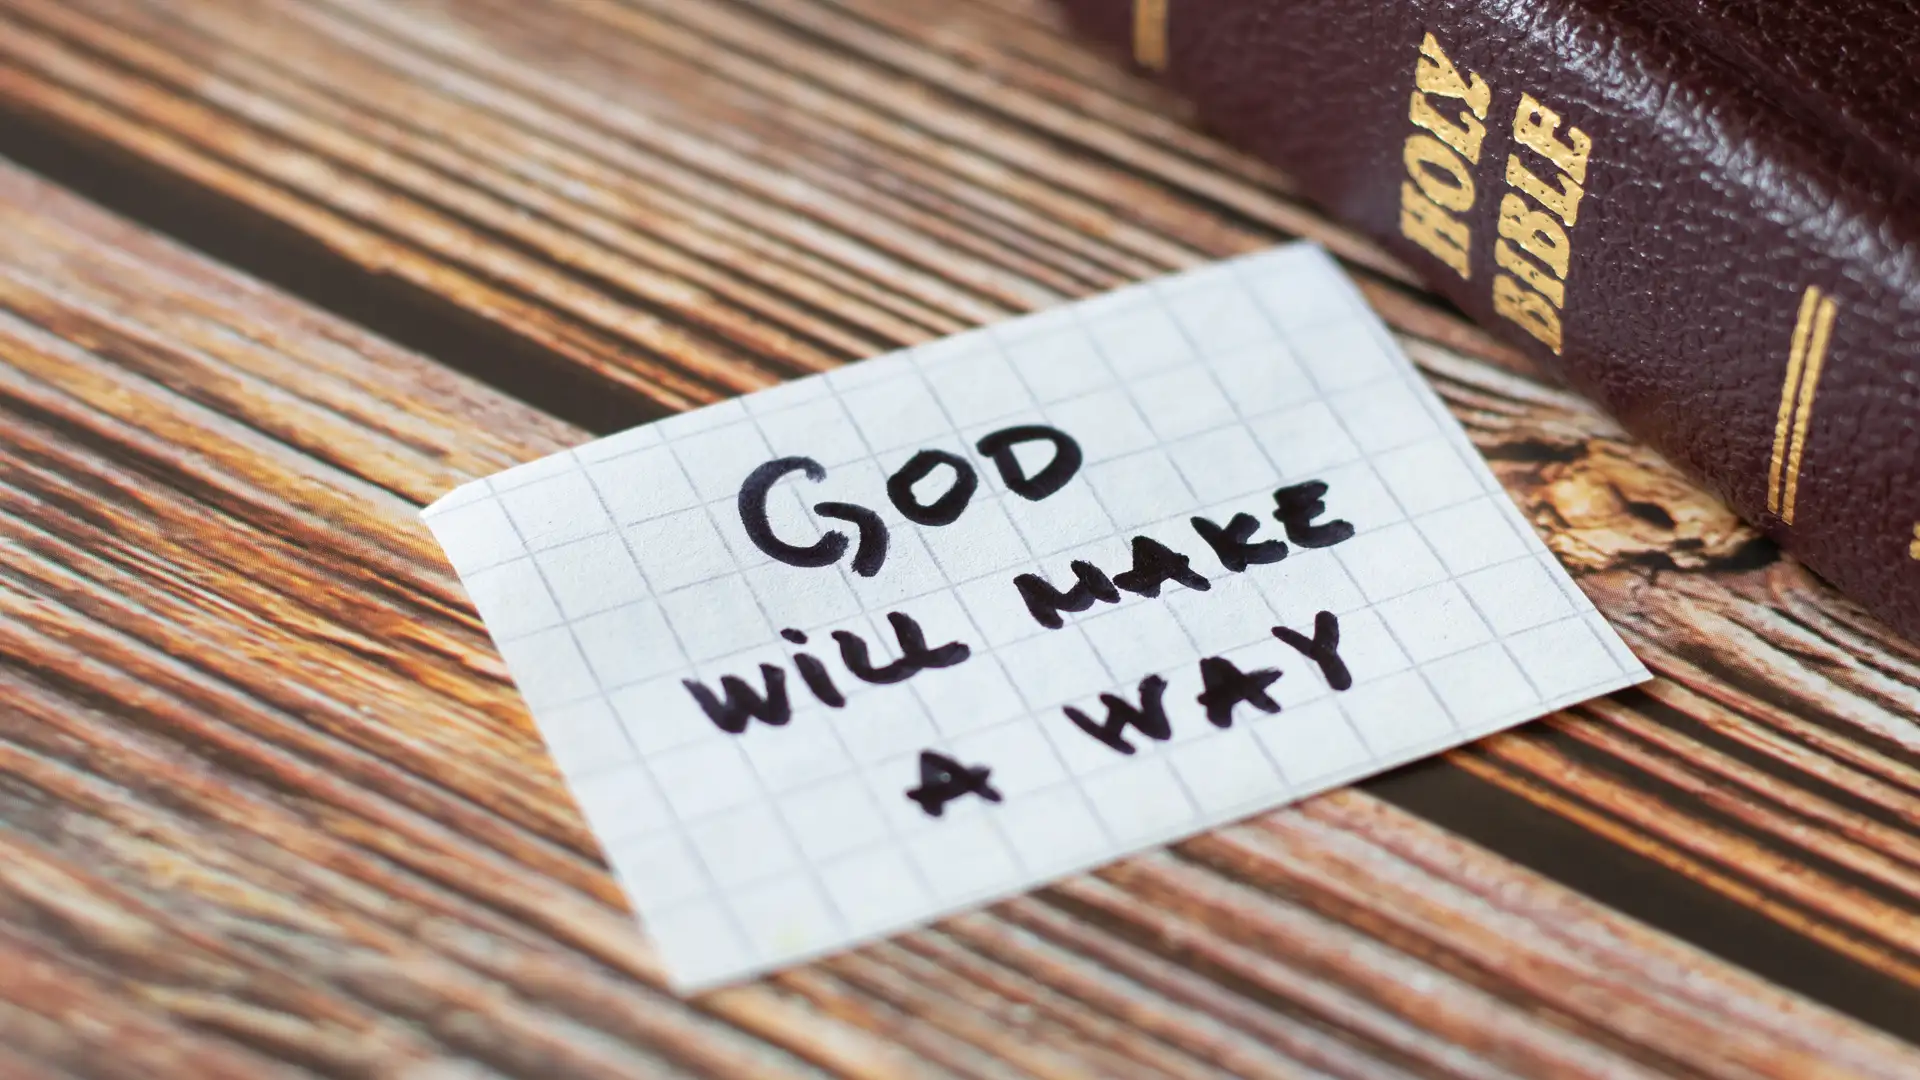 HOLY
BIBLE
GOD
WiLL MAKE
A WAY